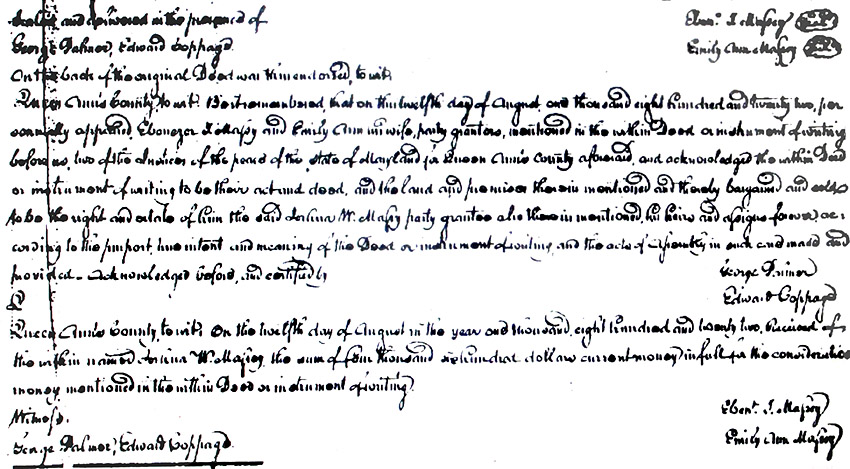 Sealed and delivered in the presence of Eben.r J. Massey (seal)
George Palmer, Edward Coppage. Emily Ann Massey (seal)
On the back of the original Deed was thus endorsed, to wit,
Queen Ann's County, to wit. Be it remembered that on the twelfth day of August, one thousand eight hundred and twenty two, per
sonally appeared, Ebenezer J Massey and Emily Ann his wife, party grantors, mentioned in the within Deed or instrument of writing
before us, two of the Justices of the peace of the state of Maryland for Queen Ann's County aforesaid, and acknowledged the within Deed
or instrument of writing to be their act and deed, and the land and premises therein mentioned and thereby bargained and sold
to be the right and estate of him the said Joshua W. Massey party grantee also therein mentioned, his heirs and assigns forever, ac-
cording to the purport, true intent and meaning of the Deed or instrument of writing, and the acts of assembly in such case made and
provided. Acknowledged before, and certified by George Palmer
Edward Coppage
Queen Ann's County, to wit. On the twelfth day of August in the year one thousand, eight hundred and twenty two, Received of
the within named Joshua W. Massey, the sum of thousand six hundred dollars current money in full for the consideration
money mentioned in the within Deed or instrument of writing.
Witness. Eben.r J. Massey
George Palmer, Edward Coppage. Emily Ann Massey